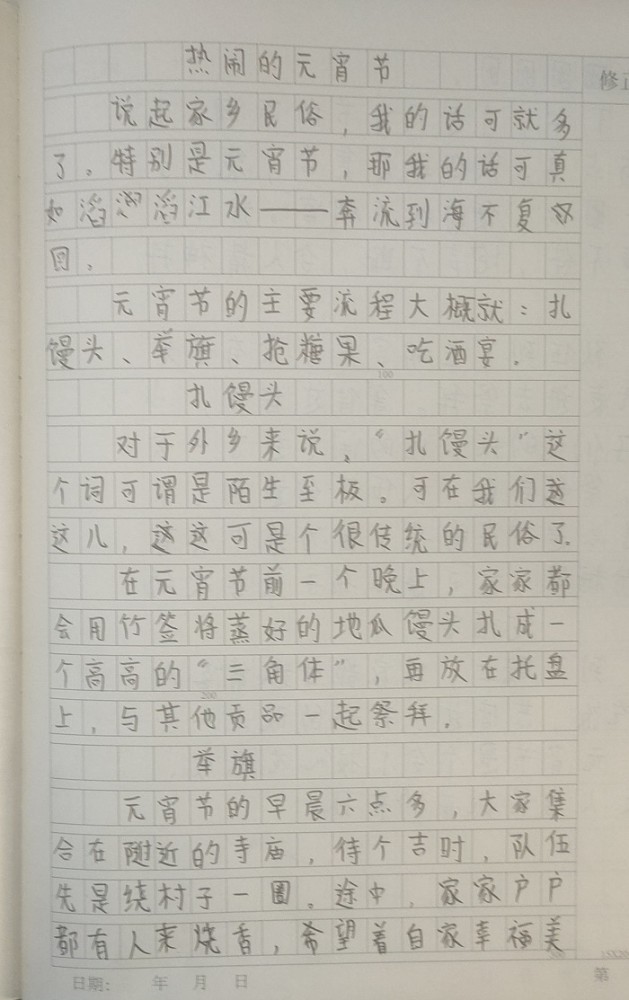 热闹的元宵节
修正
说起家乡民俗，我的话可就多
了。特别是元宵节，那我的话可真
如滔滔江水——奔流到海不复
回。
元宵节的主要流程大概就：扎
馒头、举旗、抢糖果、吃酒宴。
100
扎馒头
对于外乡来说，“扎馒头”这
个词可谓是陌生至极。可在我们这
这儿，这这可是个很传统的民俗了。
在元宵节前一个晚上，家家都
会用竹签将蒸好的地瓜馒头扎成一
个高高的“三角体”，再放在托盘
200
上，与其他贡品一起祭拜。
举旗
元宵节的早晨六点多，大家集
合在附近的寺庙，待个吉时，队伍
先是绕村子一圈。途中，家家户户
都有人来烧香，希望着自家幸福美
日期： 年 月 日
第